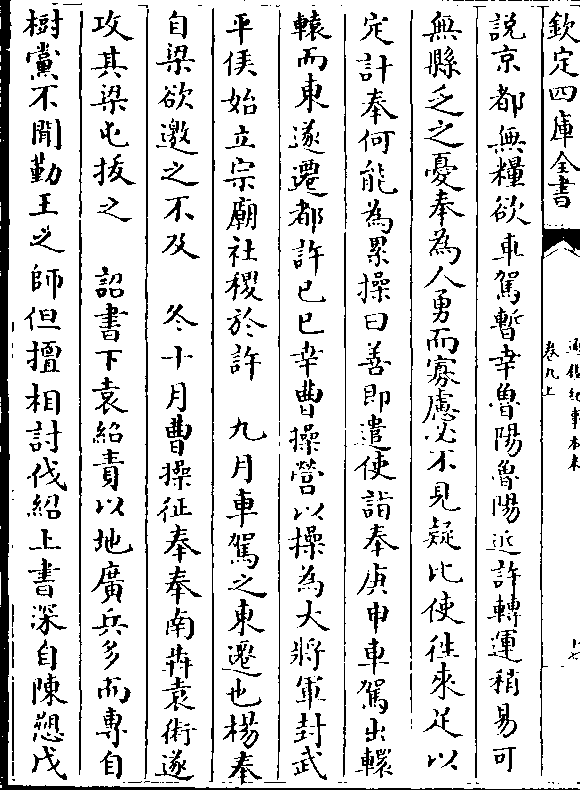 欽定四庫全書
通鑑紀事本末
卷九上
說京都無糧欲車駕暫幸魯陽魯陽近許轉運稍易可
無縣乏之憂奉為人勇而寡慮必不見疑比使往來足以
定計奉何能為累操曰善即遣使詣奉庚申車駕出轘
轅而東遂遷都許己巳幸曹操營以操為大將軍封武
平侯始立宗廟社稷於許　九月車駕之東遷也楊奉
自梁欲邀之不及　冬十月曹操征奉奉南奔袁術遂
攻其梁屯拔之　詔書下袁紹責以地廣兵多而專自
樹黨不聞勤王之師但擅相討伐紹上書深自陳愬戊